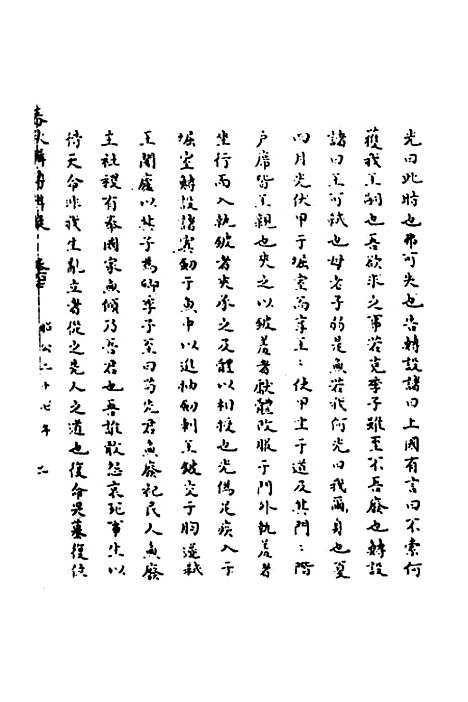 光曰此時也弗可失也告鱄設諸曰上國有言曰不索何
獲我王嗣也吾欲求之事若克季子雖至不吾廢也鱄設
諸曰王可弑也母老子弱是無若我何光曰我爾身也夏
四月光伏甲于堀室而享王:使甲坐于道及其門:階
户席皆王親也夾之以鈹羞者獻體改服于門外執羞者
坐行而入執鈹者夾承之及體以相授也光偽足疾入于
堀室鱄設諸寘劍于魚中以進抽劍刺王鈹交于胸遂弑
王闔廬以其子為卿季子至曰苟先君無廢祀民人無廢
主社稷有奉國家無傾乃吾君也吾誰敢怨哀死事生以
待天命非我生亂立者從之先人之道也復命哭墓復位
昭公二十七年